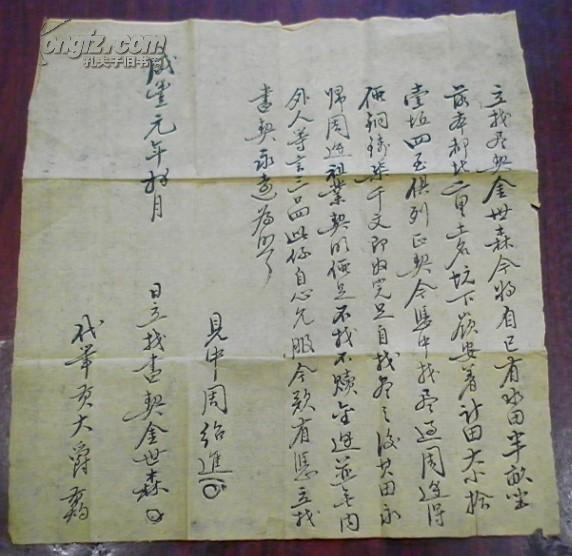 立找尽契金世森今将自己有水田半畝坐
落本都北二里土名坑下安着計田大小拾
壹坵四至俱列正契今憑中找尽過周進得
価銅錢柒千文即日完足自找尽之後其田永
歸周進祖業契明価足不找不贖金進並無内
外人等言三四此係自心允服今欲有憑立找
書契永遠為照
見中周紹進
咸豐元年 月 日立找書契金世森
代筆 大爵
kongfz.com
孔夫子旧书网